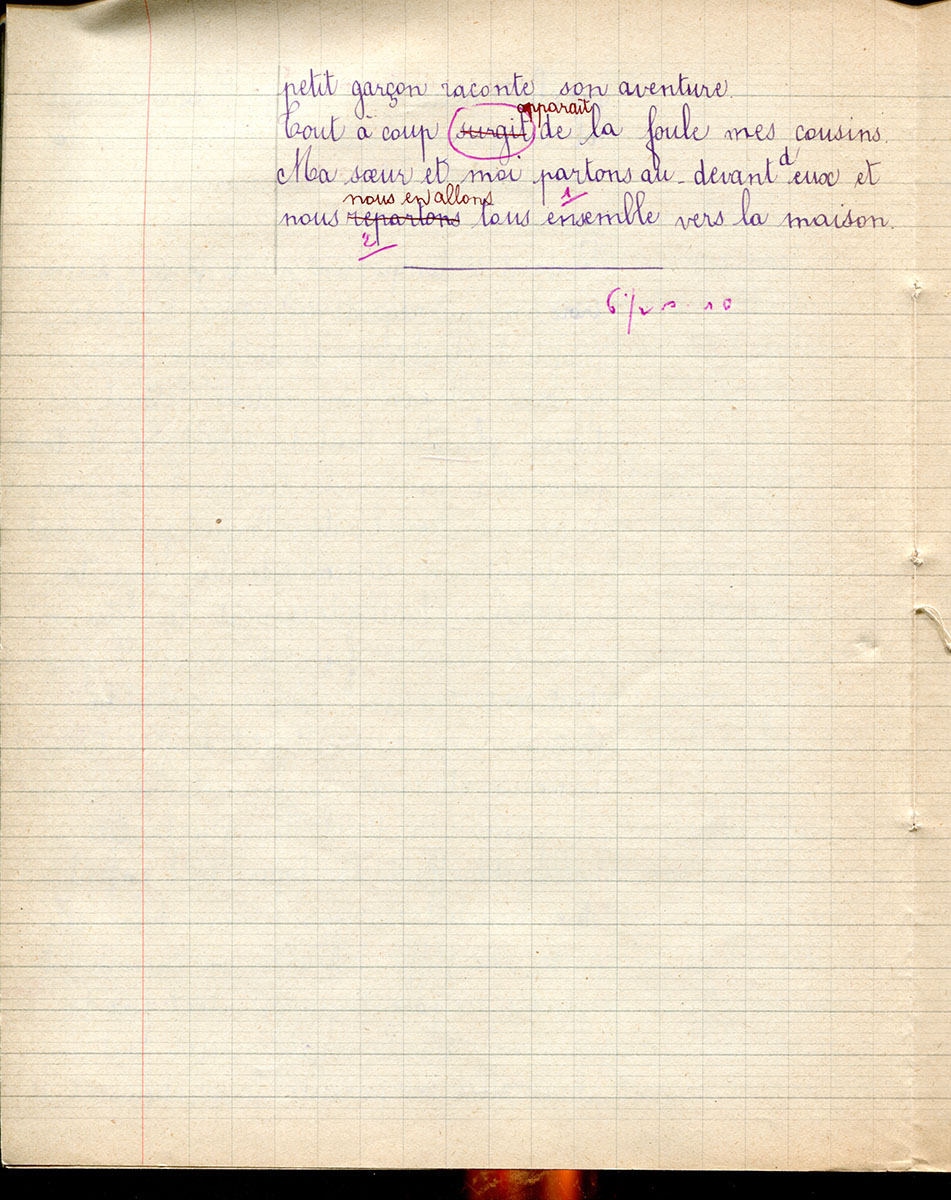 petit garçon raconte son aventure.
apparaît
Tout à coup surgit de la foule mes cousins.
Ma sœur et moi partons au-devant d'eux et
nous en allons
1
nous repartons tous ensemble vers la maison.
2